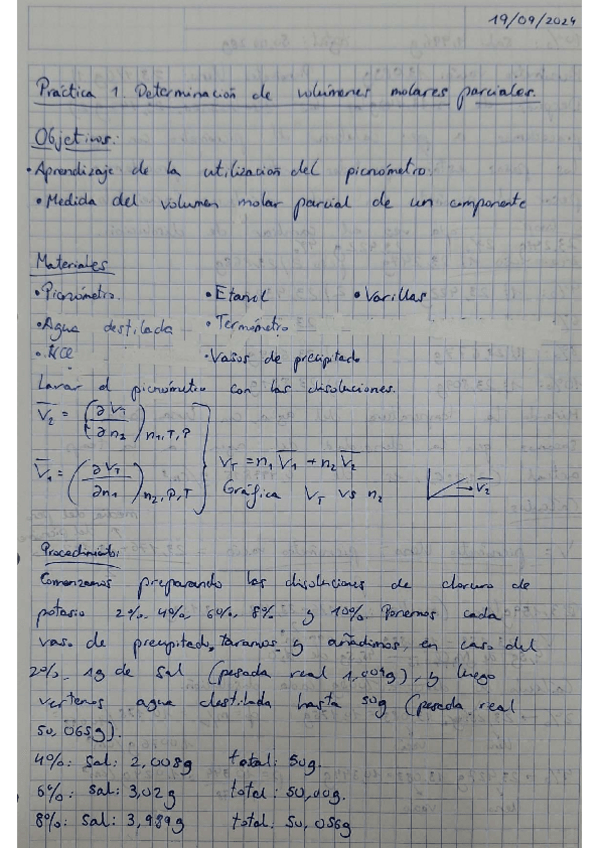 19/09/2024
Práctica 1. Determinación de volúmenes molares parciales.
Objetivos:
• Aprendizaje de la utilización del picnómetro
• Medida del volumen molar parcial de un componente
Materiales
• Picnómetro. • Etanol • Varillas
• Agua destilada • Termómetro
• KCl • Vasos de precipitado
Lavar el picnómetro con las disoluciones.
V̄₂ = (∂V_T/∂n₂)n₁,T,P
V_T = n₁V̄₁ + n₂V̄₂
V̄₁ = (∂V_T/∂n₁)n₂,P,T
Gráfica V_T vs n₂ V̄₂
Procedimiento:
Comenzamos preparando las disoluciones de cloruro de
potasio 2%, 4%, 6%, 8% y 10%. Ponemos cada
vaso de precipitado, taramos y añadimos, en caso del
2%, 1g de sal (pesada real 1,009g), y luego
vertemos agua destilada hasta 50g (pesada real
50,065g).
4%: Sal: 2,008g total: 50g.
6%: Sal: 3,02g total: 50,00g.
8%: Sal: 3,989g total: 50,056g